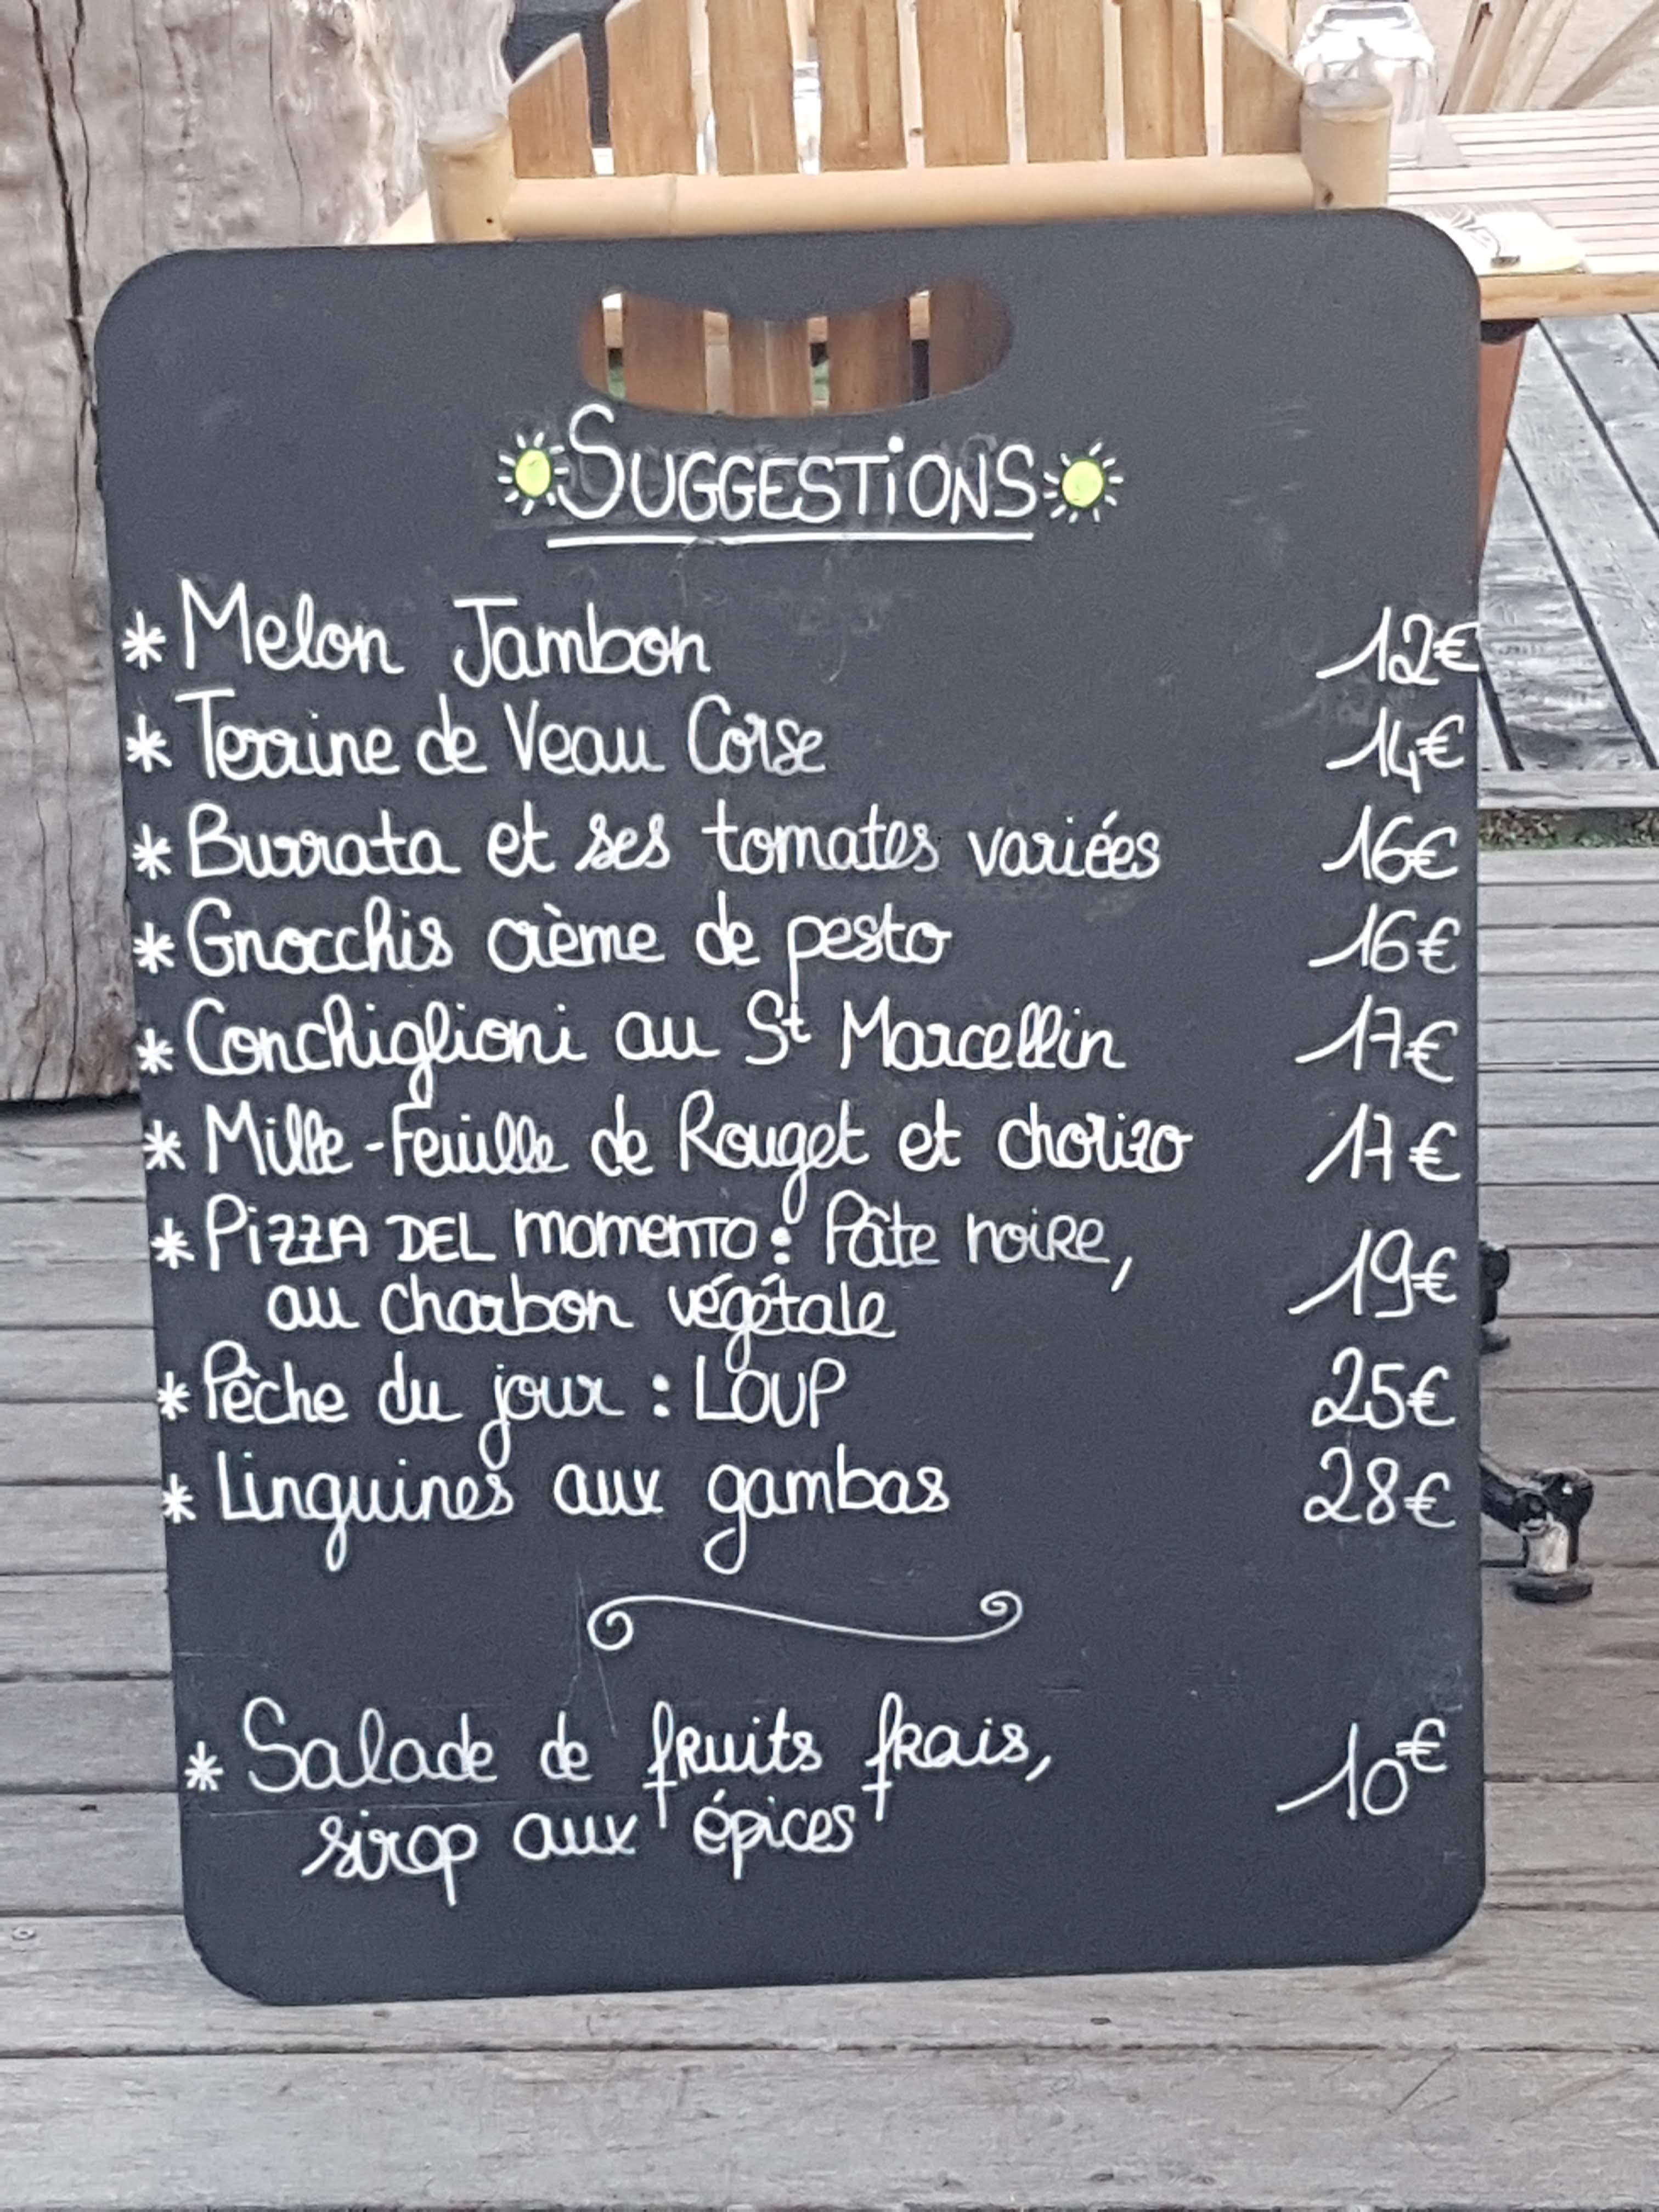 SUGGESTiONS
* Melon Jambon 12€
* Terrine de Veau Corse 14€
* Burrata et ses tomates variées 16€
* Gnocchis crème de pesto 16€
* Conchiglioni au St Marcellin 17€
* Mille-Feuille de Rouget et chorizo 17€
* PiZZA DEL momenTO : Pâte noiRe, 19€
au charbon végétale
* Pêche du jour : LOUP 25€
* Linguines aux gambas 28€
* Salade de fRuits fRais, 10€
sirop aux épices